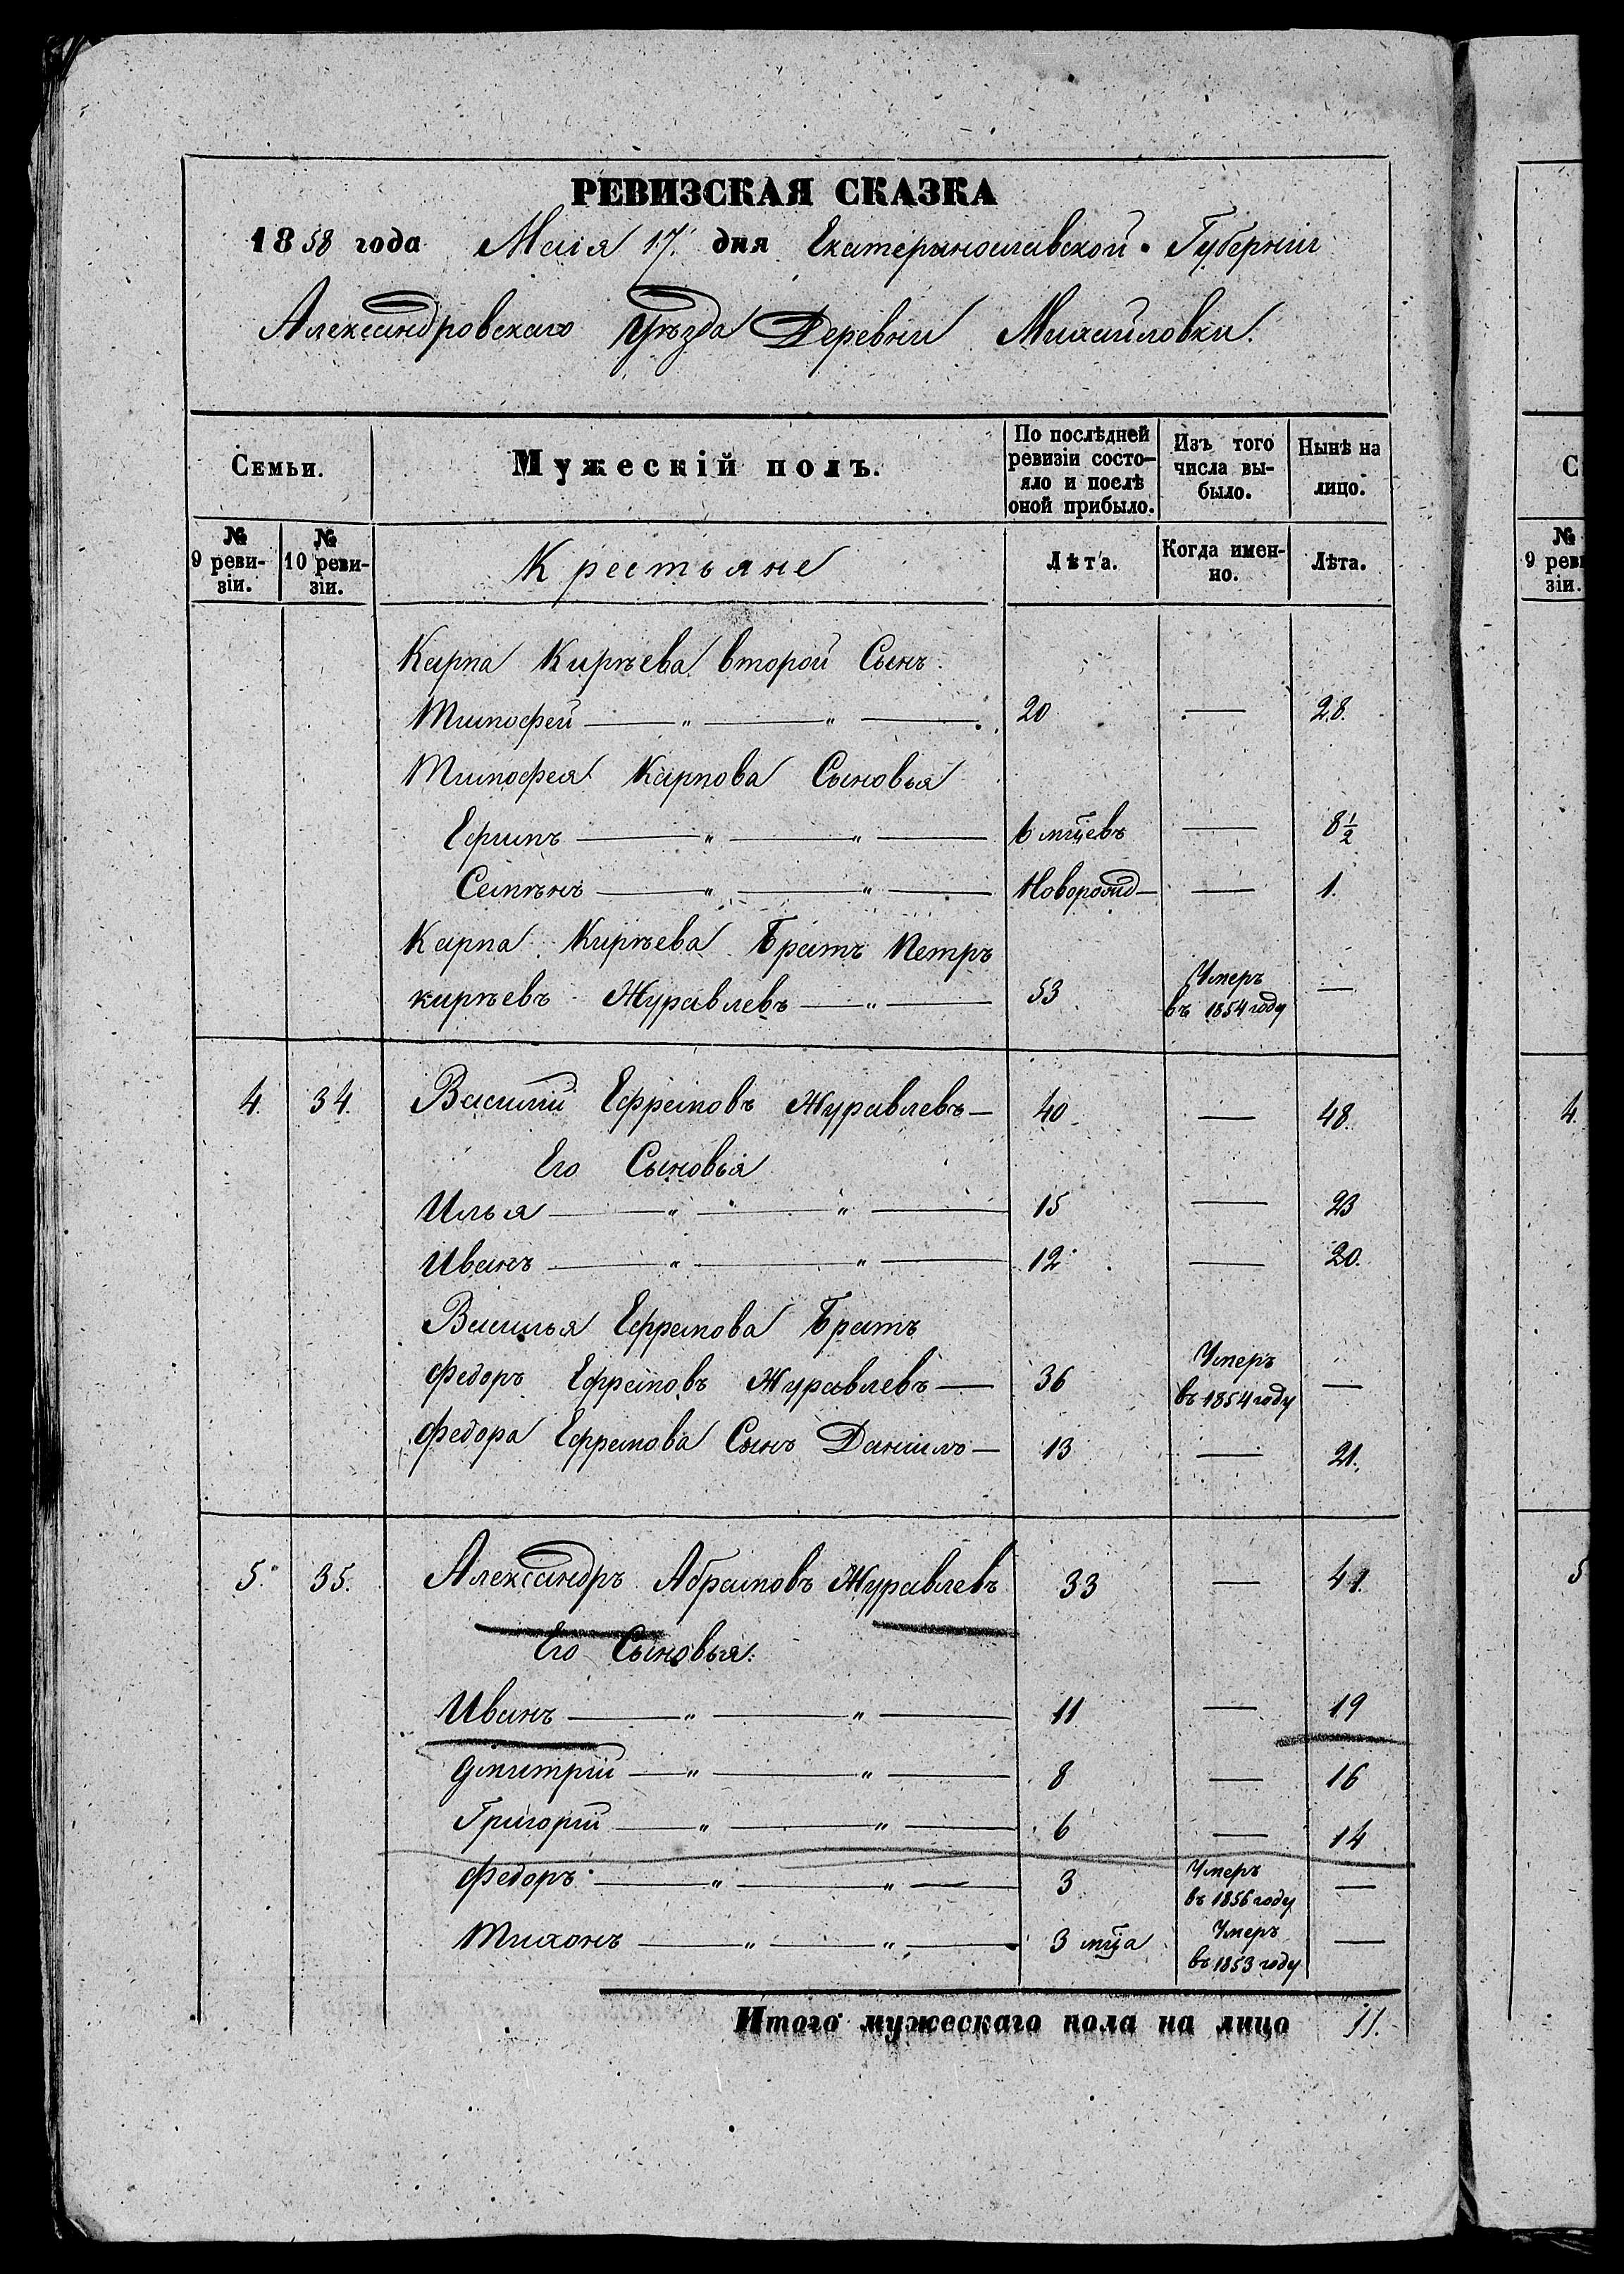 РЕВИЗСКАЯ СКАЗКА
1858 года Маія 17. дня Екатеринославской Губерніи
Александровскаго Уѣзда Деревни Михайловки.
Семьи. Мужескій полъ. По послѣдней ревизіи состояло и послѣ оной прибыло. Изъ того числа выбыло. Нынѣ на лицо.
№ 9 ревизіи. № 10 ревизіи. Крестьяне Лѣта. Когда именно. Лѣта.
Карпа Кирѣева второй Сынъ
Тимофей — " — " — 20 — 28.
Тимофея Карпова Сыновья
Ефимъ — " — " — 6 мцевъ — 8½
Семѣнъ — " — " — Новорожд— — 1.
Карпа Кирѣева Братъ Петръ
кирѣевъ Журавлевъ — " — 53 Умеръ въ 1854 году —
4. 34. Василій Ефремовъ Журавлевъ— 40 — 48.
Его Сыновья
Илья — " — " — 15 — 23
Иванъ — " — " — 12 — 20.
Василья Ефремова Братъ
Федоръ Ефремовъ Журавлевъ — 36 Умеръ въ 1854 году —
Федора Ефремова Сынъ Данило — 13 — 21.
5. 35. Александръ Абрамовъ Журавлевъ 33 — 41.
Его Сыновья:
Иванъ — " — " — 11 — 19
Дмитрій — " — " — 8 — 16
Григорій — " — " — 6 — 14
Федоръ — " — " — 3 Умеръ въ 1856 году —
Тихонъ — " — " — 3 мца Умеръ въ 1853 году —
Итого мужескаго пола на лицо 11.
С
№
9 рев
зіи.
4.
5